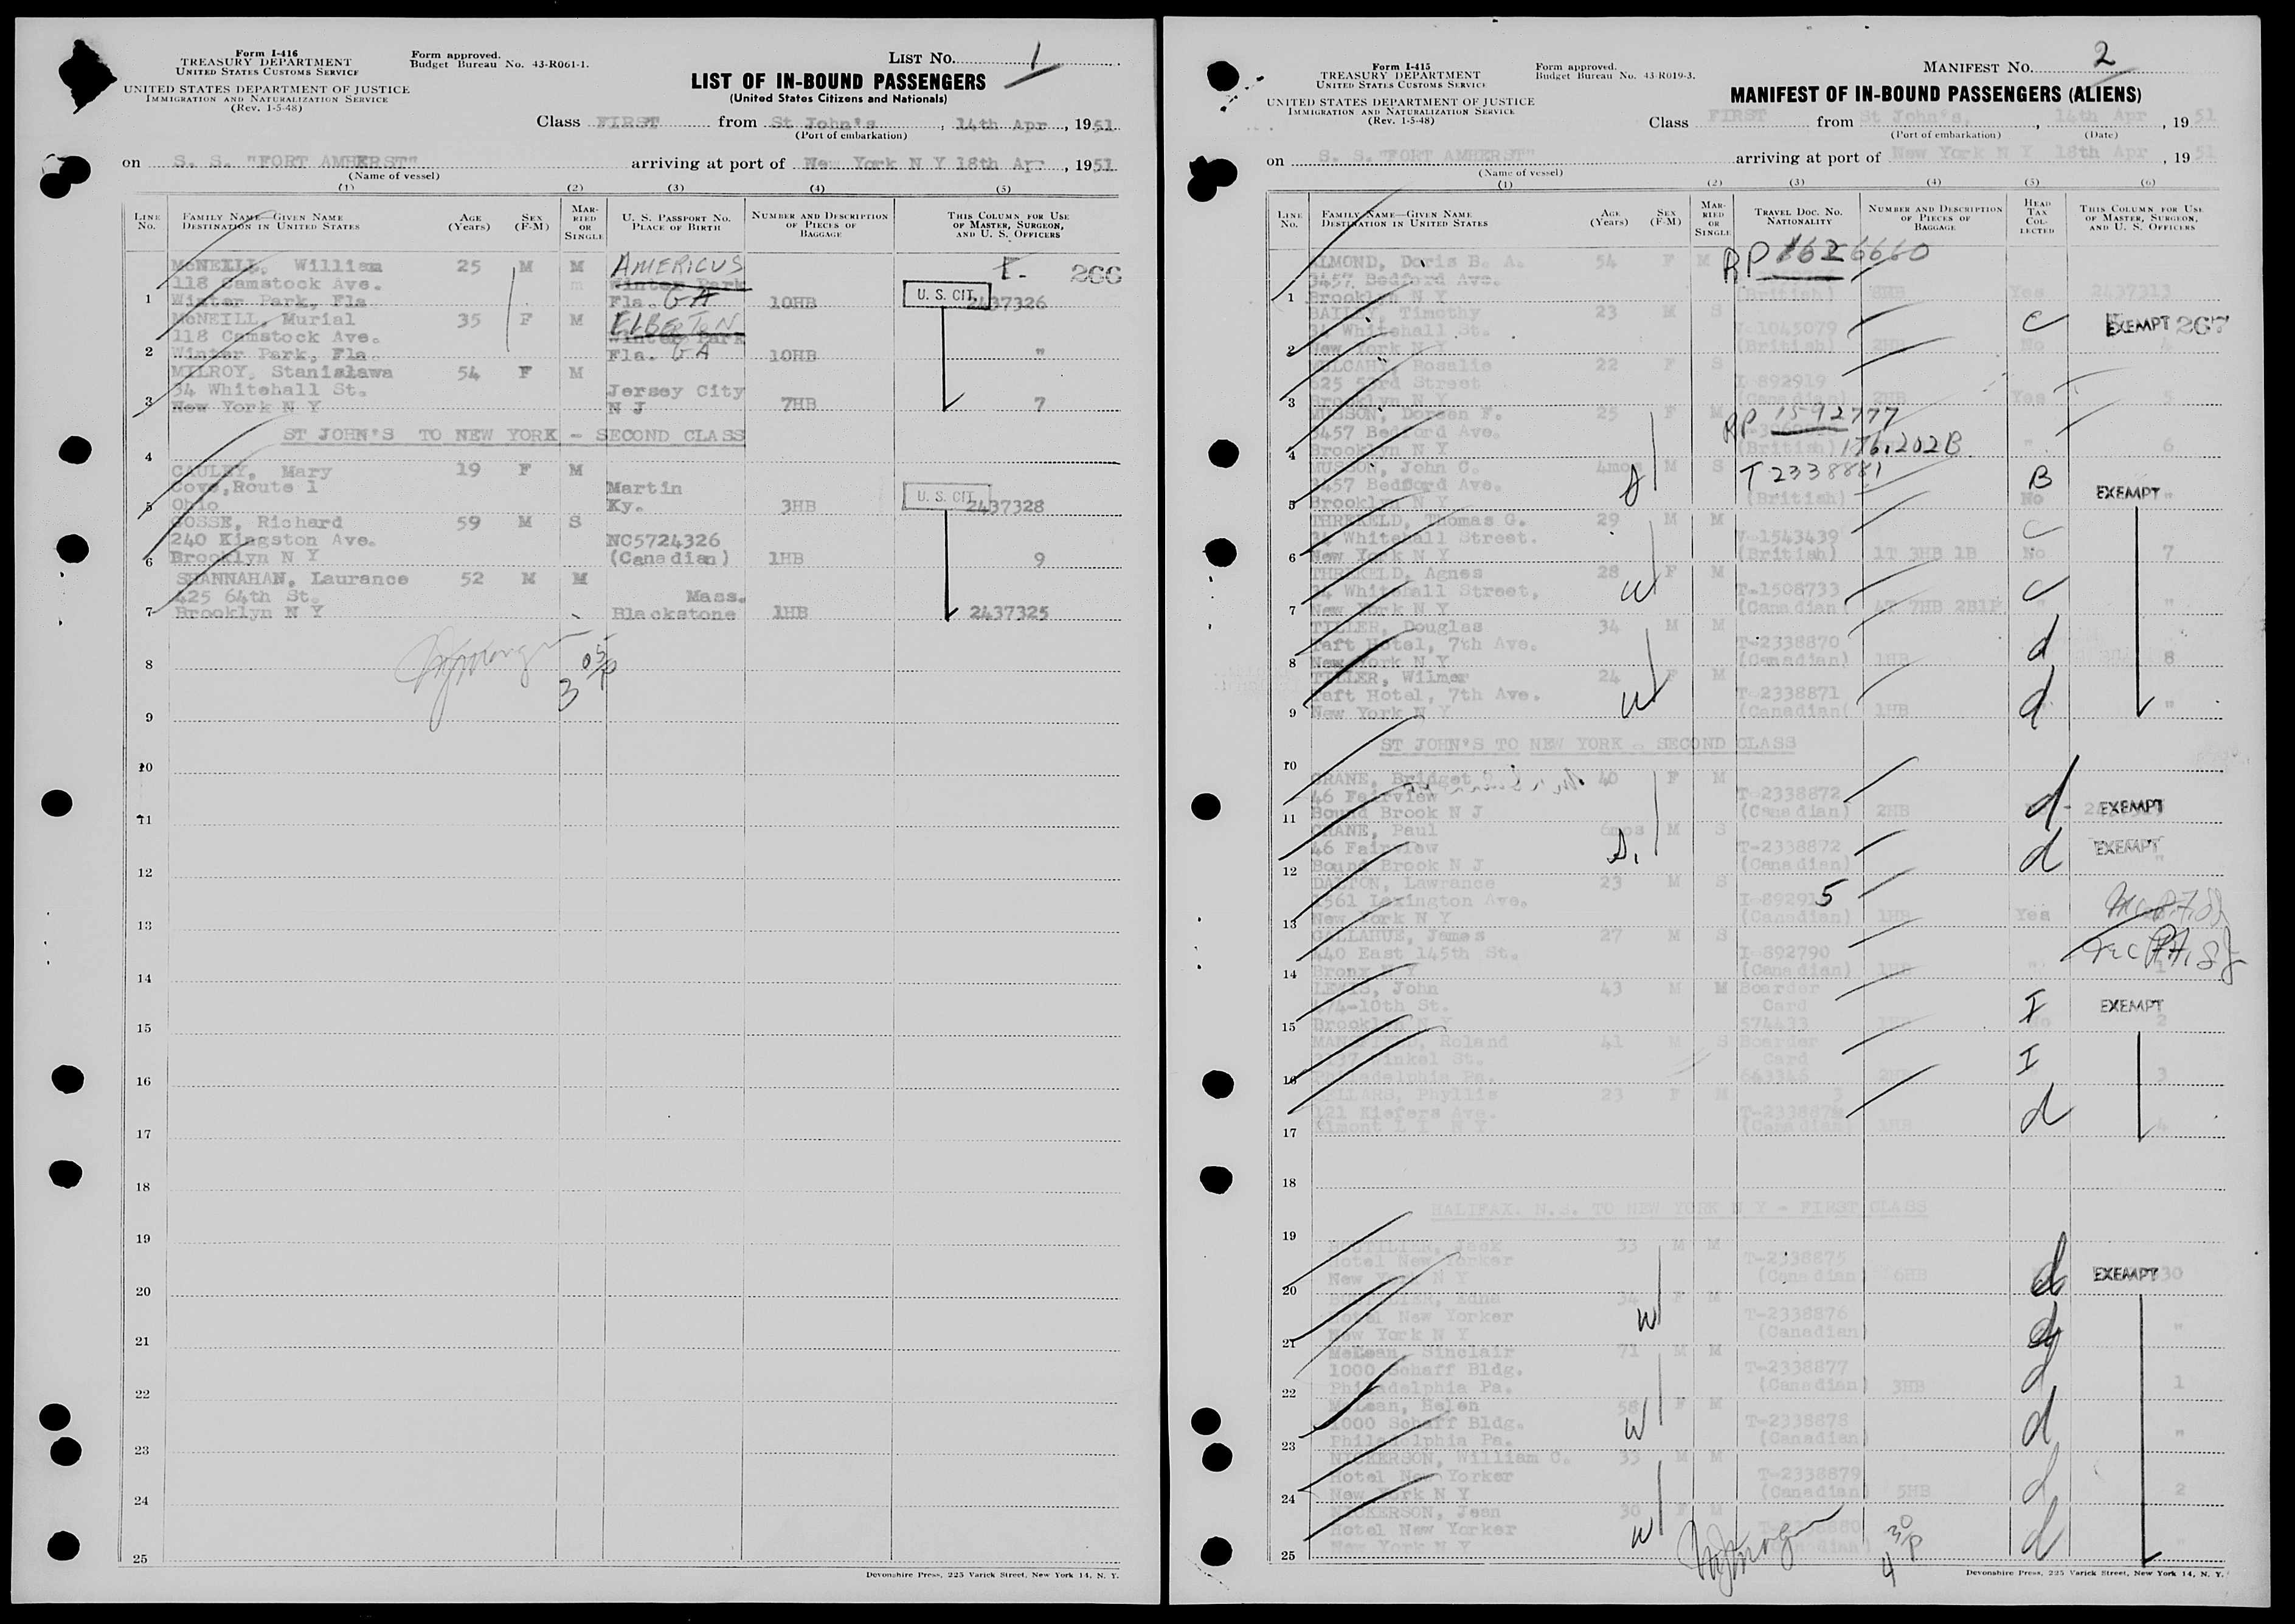 Form I-416
TREASURY DEPARTMENT
UNITED STATES CUSTOMS SERVICE
UNITED STATES DEPARTMENT OF JUSTICE
IMMIGRATION AND NATURALIZATION SERVICE
(Rev. 1-5-48)
Form approved.
Budget Bureau No. 43-R061-1.
LIST No. 1
LIST OF IN-BOUND PASSENGERS
(United States Citizens and Nationals)
Class FIRST from St John's, 14th Apr, 1951
(Port of embarkation)
on S. S. "FORT AMHERST" arriving at port of New York N Y 18th Apr, 1951
(Name of vessel)
(1) (2) (3) (4) (5)
LINE No. FAMILY NAME—GIVEN NAME DESTINATION IN UNITED STATES AGE (Years) SEX (F-M) MARRIED OR SINGLE U. S. PASSPORT No. PLACE OF BIRTH NUMBER AND DESCRIPTION OF PIECES OF BAGGAGE THIS COLUMN FOR USE OF MASTER, SURGEON, AND U. S. OFFICERS
McNEILL, William 25 M M AMERICUS 266
118 Comstock Ave. Winter Park
1 Winter Park, Fla Fla. GA 10HB U. S. CIT. 2437326
McNEILL, Murial 35 F M ELBERTON
118 Comstock Ave. Winter Park
2 Winter Park, Fla. Fla. GA 10HB "
MILROY, Stanislawa 54 F M
34 Whitehall St. Jersey City
3 New York N Y N J 7HB 7
ST JOHN'S TO NEW YORK - SECOND CLASS
4
CAULEY, Mary 19 F M
Cove, Route 1 Martin
5 Ohio Ky. 3HB U. S. CIT. 2437328
GOSSE, Richard 59 M S
240 Kingston Ave. NC5724326
6 Brooklyn N Y (Canadian) 1HB 9
SHANNAHAN, Laurance 52 M M
425 64th St. Mass.
7 Brooklyn N Y Blackstone 1HB 2437325
8
9
10
11
12
13
14
15
16
17
18
19
20
21
22
23
24
25
Devonshire Press, 225 Varick Street, New York 14, N. Y.
Form I-415
TREASURY DEPARTMENT
UNITED STATES CUSTOMS SERVICE
UNITED STATES DEPARTMENT OF JUSTICE
IMMIGRATION AND NATURALIZATION SERVICE
(Rev. 1-5-48)
Form approved.
Budget Bureau No. 43-R019-3.
MANIFEST No. 2
MANIFEST OF IN-BOUND PASSENGERS (ALIENS)
Class FIRST from St John's, 14th Apr, 1951
(Port of embarkation) (Date)
on S. S. "FORT AMHERST" arriving at port of New York N Y 18th Apr, 1951
(Name of vessel)
(1) (2) (3) (4) (5) (6)
LINE No. FAMILY NAME—GIVEN NAME DESTINATION IN UNITED STATES AGE (Years) SEX (F-M) MARRIED OR SINGLE TRAVEL DOC. No. NATIONALITY NUMBER AND DESCRIPTION OF PIECES OF BAGGAGE HEAD TAX COLLECTED THIS COLUMN FOR USE OF MASTER, SURGEON, AND U. S. OFFICERS
ALMOND, Doris B. A. 54 F M RP 1626660
3457 Bedford Ave.
1 Brooklyn N Y (British) Yes 2437313
BAILEY, Timothy 23 M S
34 Whitehall St. V-1045079 C EXEMPT 267
2 New York N Y (British) 2HB No 4
MULCAHY, Rosalie 22 F S
625 53rd Street I-892919
3 Brooklyn N Y (Canadian) 2HB Yes 5
MUSSON, Doreen F. 25 F M RP 1592777
3457 Bedford Ave.
4 Brooklyn N Y (British) 176.202B " 6
MUSSON, John C. 4mos M S T 2338881 B
5 3457 Bedford Ave. (British) No EXEMPT "
Brooklyn N Y
THREKELD, Thomas G. 29 M M
34 Whitehall Street. V-1543439 C
6 New York N Y (British) 1T 3HB 1B No 7
THREKELD, Agnes 28 F M
34 Whitehall Street, T-1508733 C
7 New York N Y (Canadian( 4T 7HB 2B1P "
TILLER, Douglas 34 M M
Taft Hotel, 7th Ave. T-2338870 d
8 New York N Y (Canadian) 1HB 8
TILLER, Wilmer 24 F M
Taft Hotel, 7th Ave. T-2338871 d
9 New York N Y (Canadian( 1HB "
ST JOHN'S TO NEW YORK - SECOND CLASS
10
CRANE, Bridget 40 F M
46 Fairview T-2338872 d EXEMPT
11 Bound Brook N J (Canadian) 2HB
CRANE, Paul 6mos M S
46 Fairview T-2338872 d EXEMPT
12 Bound Brook N J (Canadian) "
DALTON, Lawrance 23 M S
1561 Lexington Ave. I-89291 5
13 New York N Y (Canadian) 1HB Yes
GALLAHUE, James 27 M S
440 East 145th St. I-892790
14 Bronx N Y (Canadian) 1HB " 1
LEWIS, John 43 M M Boarder
474-10th St. Card I EXEMPT
15 Brooklyn N Y 574433 No 2
Roland 41 M S Boarder
St. Card I
16 Philadelphia Pa. 643346 2HB 3
SELLARS, Phyllis 23 F M 3
121 Kiefers Ave. T-233887 d
17 Elmont L I N Y (Canadian) 1HB 4
18
HALIFAX. N.S. TO NEW YORK N Y - FIRST CLASS
19
BOUTILIER, Jack 33 M M
Hotel New Yorker T-2338875 d EXEMPT
20 New York N Y (Canadian 6HB 30
BOUTILIER, Edna 34 F M
Hotel New Yorker T-2338876 d
21 New York N Y (Canadian "
McLean, Sinclair 71 M M
1000 Schaff Bldg. T-2338877 d
22 Philadelphia Pa. (Canadian) 3HB 1
McLean, Helen 58 F M
1000 Schaff Bldg. T-2338878 d
23 Philadelphia Pa. (Canadian) "
NICKERSON, William C. 33 M M
Hotel New Yorker T-2338879 d
24 New York N Y (Canadian) 5HB 2
NICKERSON, Jean 30 F M
Hotel New Yorker T-2338880 d
25 New York N Y "
Devonshire Press, 225 Varick Street, New York 14, N. Y.